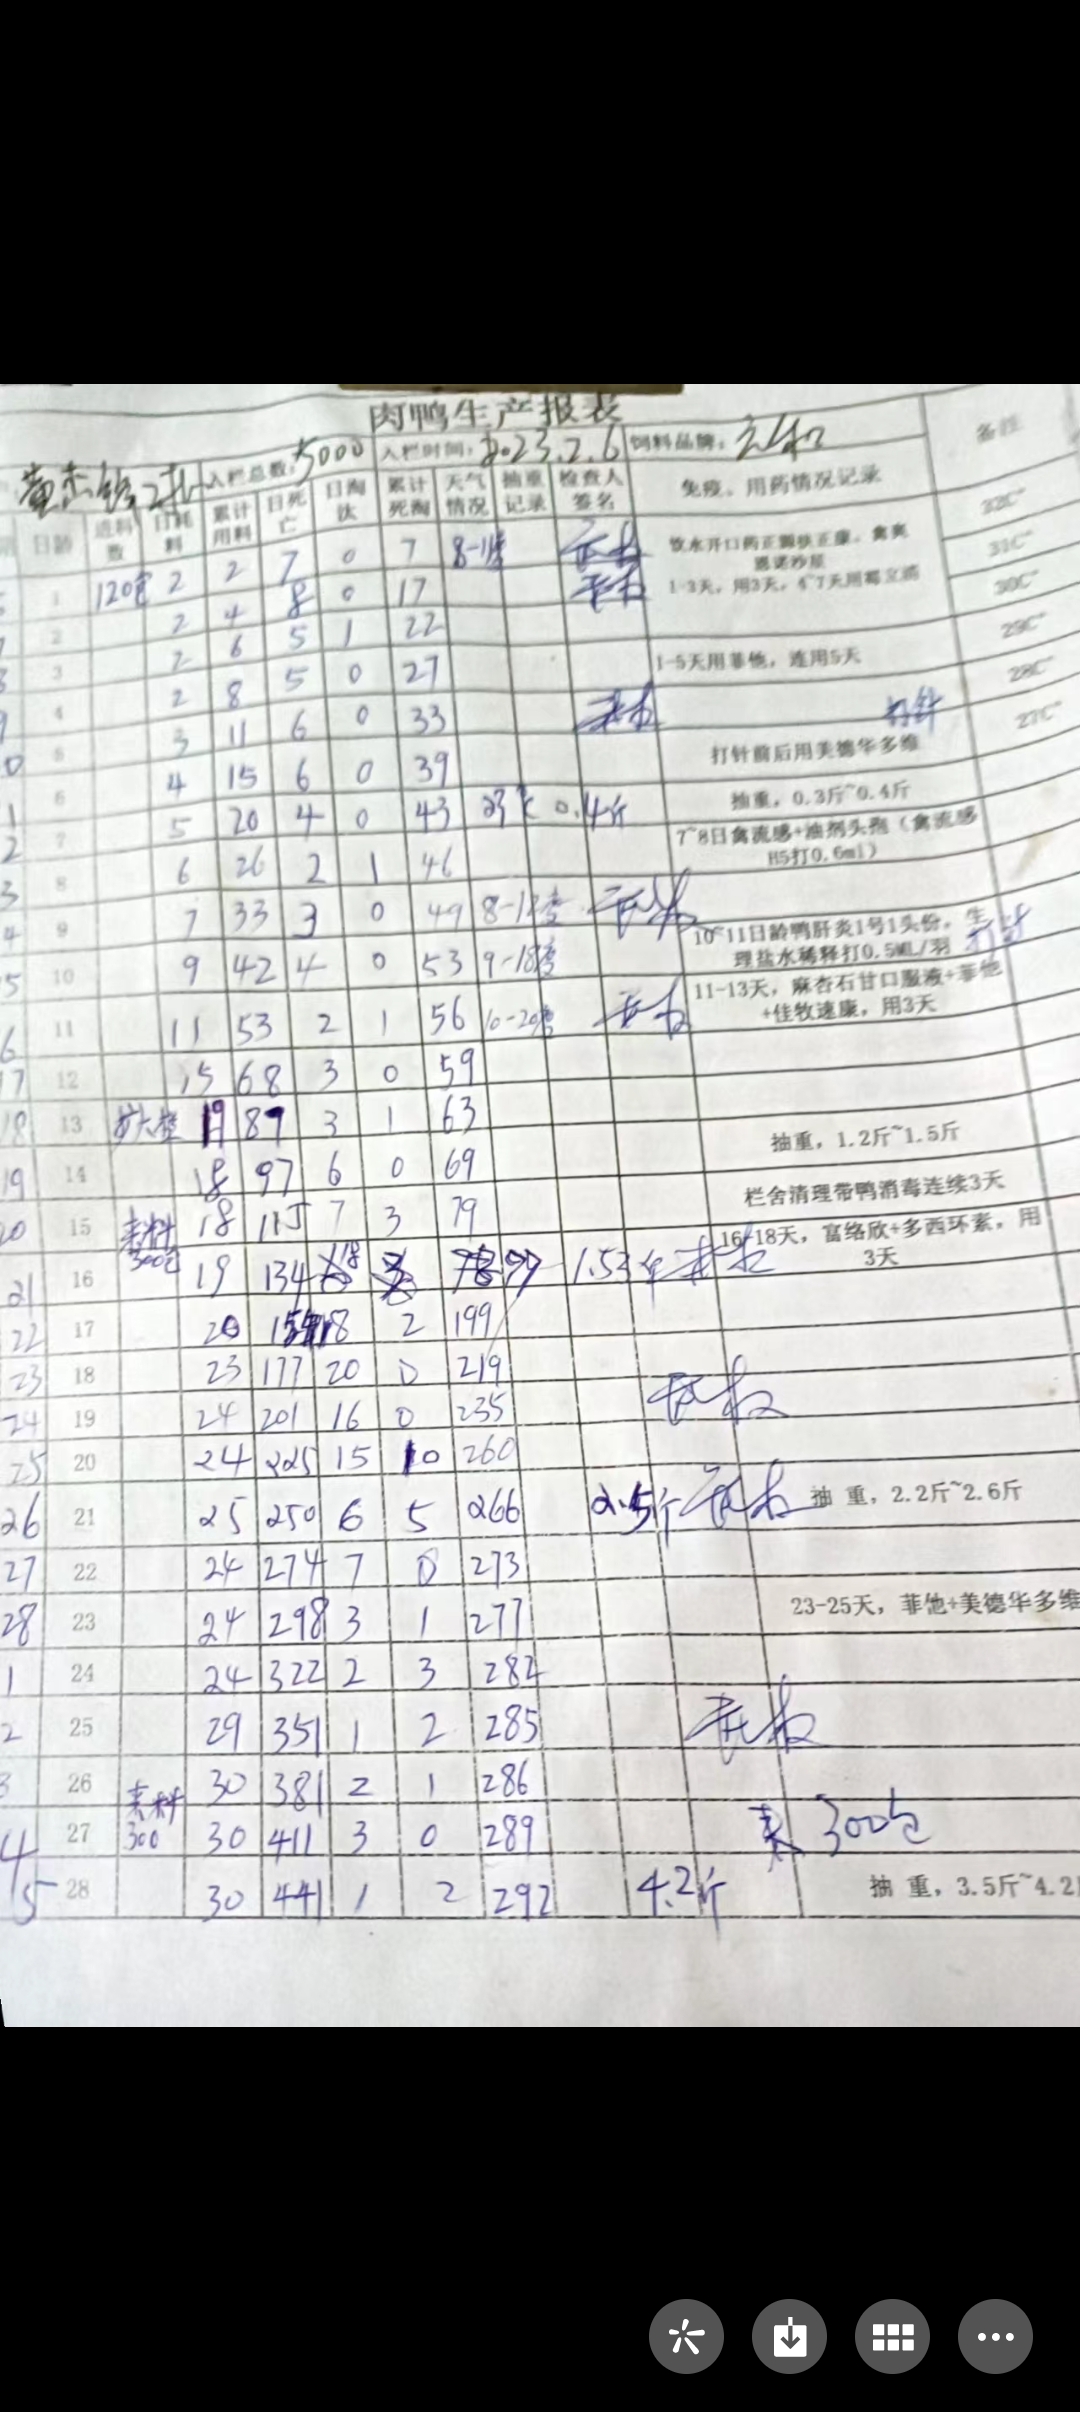 肉鸭生产报表
入栏总数：5000 入栏时间：2023.2.6 饲料品牌： 备注
日龄 进料数 日耗料 累计用料 日死亡 日淘汰 累计死淘 天气情况 抽重记录 检查人签名 免疫、用药情况记录
1 120包 2 2 7 0 7 饮水开口药 33C°
2 2 4 8 0 17 1-3天，用3天，4-7天用 31C°
3 2 6 5 1 22 30C°
4 2 8 5 0 27 1-5天用菲他，连用5天 29C°
9 5 3 11 6 0 33 打针 28C°
10 6 4 15 6 0 39 打针前后用美德华多维 27C°
1 7 5 20 4 0 43 0.4斤 抽重，0.3斤~0.4斤
2 8 6 26 2 1 46 7~8日禽流感+油剂头孢（禽流感H5打0.6ml）
3 9 7 33 3 0 49
4 10 9 42 4 0 53 9-18度 10~11日龄鸭肝炎1号1头份，生理盐水稀释打0.5ML/羽 打针
5 11 11 53 2 1 56 10-20度 11-13天，麻杏石甘口服液+菲他+佳牧速康，用3天
17 12 15 68 3 0 59
18 13 扩大栏 19 87 3 1 63
19 14 18 97 6 0 69 抽重，1.2斤~1.5斤
20 15 18 115 7 3 79 栏舍清理带鸭消毒连续3天
21 16 来料300包 19 134 118 1.53斤 16-18天，富络欣+多西环素，用3天
22 17 20 18 2 199
23 18 23 177 20 0 219
24 19 24 201 16 0 235
25 20 24 225 15 10 260
26 21 25 250 6 5 266 2.5斤 抽 重，2.2斤~2.6斤
27 22 24 274 7 0 273
28 23 24 298 3 1 277 23-25天，菲他+美德华多维
1 24 24 322 2 3 282
2 25 29 351 1 2 285
3 26 30 381 2 1 286
4 27 来料300 30 411 3 0 289 来300包
5 28 30 441 1 2 292 4.2斤 抽 重，3.5斤~4.2